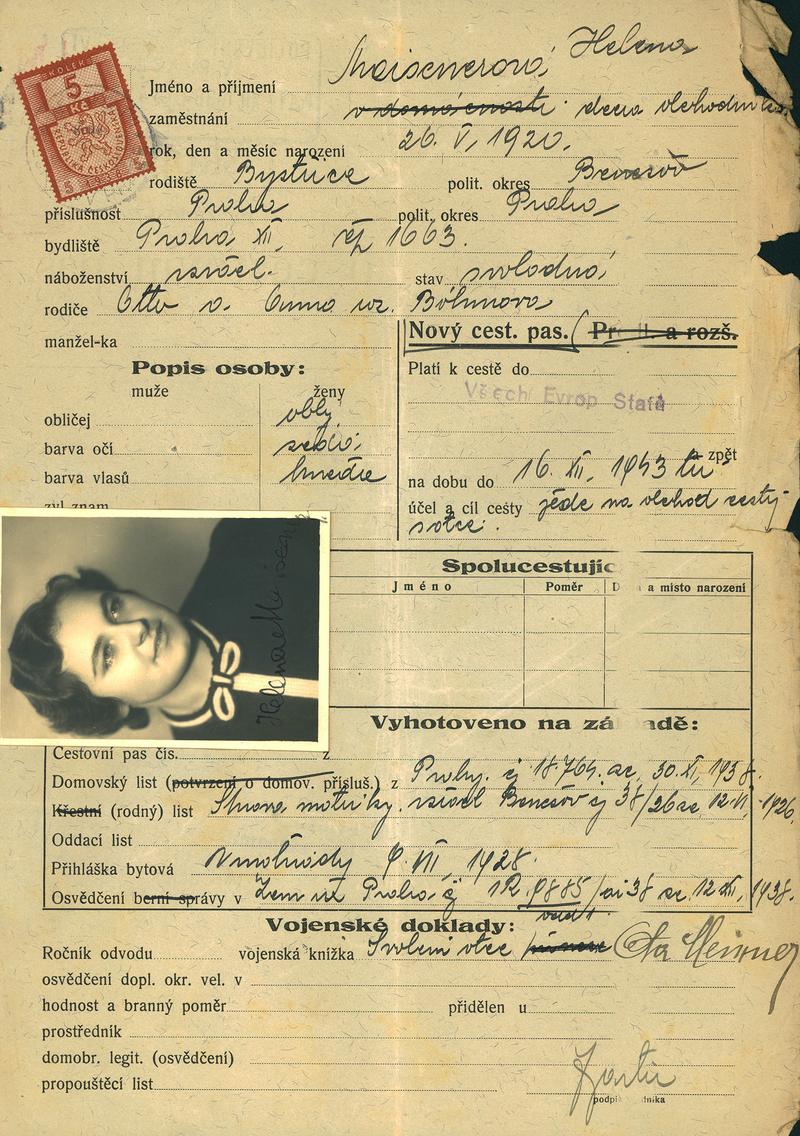 KOLEK
5
Kč
REPUBLIKA ČESKOSLOVENSKÁ
Jméno a příjmení Maisnerová Helena
zaměstnání v domácnosti dcera
rok, den a měsíc narození 26. V. 1920.
rodiště Bystřice polit. okres Benešov
příslušnost Praha polit. okres Praha
bydliště Praha XII, čp 1663.
náboženství israel. stav svobodná
rodiče Otto a Anna roz. Böhmova
manžel-ka
Nový cest. pas. a rozš.
Popis osoby:
muže ženy
Platí k cestě do
Všech Evrop Států
obličej oblý
barva očí šedé
barva vlasů hnědé
zvl znam
a zpět
na dobu do 16. XII. 1943
účel a cíl cesty jede na obchod cesty
otce.
Helena Maisnerová
Spolucestujíc
Jméno Poměr a místo narození
Vyhotoveno na zá adě:
Cestovní pas čís. z
Domovský list (potvrzení o domov. přísluš.) z Prahy. čj 18.764. ze 30. XI. 1938.
Křestní (rodný) list matriky. israel Benešov čj 38/26 ze 12. VI. 1926.
Oddací list
Přihláška bytová Vinohrady VII. 1928.
Osvědčení berní správy v Praha čj 12. XII. 1938.
Vojenské doklady:
Ročník odvodu vojenská knížka Svolení otce
osvědčení dopl. okr. vel. v
hodnost a branný poměr přidělen u
prostředník
domobr. legit. (osvědčení)
propouštěcí list
podpi dníka